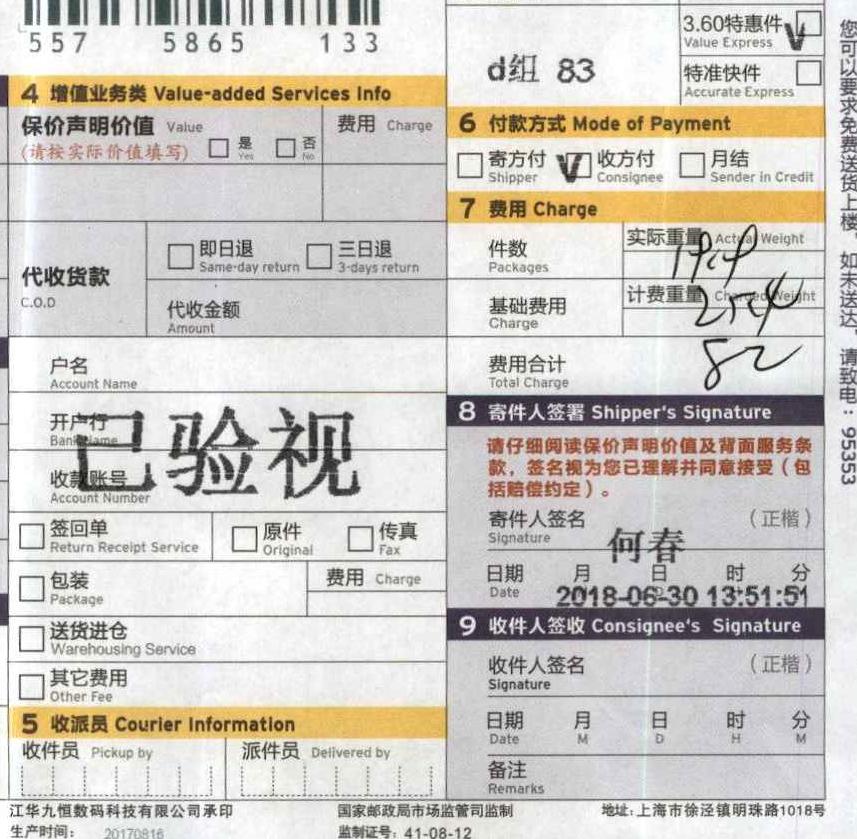 557 5865 133
3.60特惠件
Value Express
d组 83
特准快件
Accurate Express
4 增值业务类 Value-added Services Info
保价声明价值 Value
(请按实际价值填写)
是
Yes
否
No
费用 Charge
代收货款
C.O.D
即日退
Same-day return
三日退
3-days return
代收金额
Amount
户名
Account Name
开户行
Bank Name
已验视
收款账号
Account Number
签回单
Return Receipt Service
原件
Original
传真
Fax
包装
Package
费用 Charge
送货进仓
Warehousing Service
其它费用
Other Fee
5 收派员 Courier Information
收件员 Pickup by
派件员 Delivered by
6 付款方式 Mode of Payment
寄方付
Shipper
收方付
Consignee
月结
Sender in Credit
7 费用 Charge
件数
Packages
实际重量 Actual Weight
基础费用
Charge
计费重量 Charged Weight
费用合计
Total Charge
82
8 寄件人签署 Shipper's Signature
请仔细阅读保价声明价值及背面服务条
款，签名视为您已理解并同意接受（包
括赔偿约定）。
寄件人签名 （正楷）
Signature
何春
日期 月 日 时 分
Date
2018-06-30 13:51:51
9 收件人签收 Consignee's Signature
收件人签名 （正楷）
Signature
日期 月 日 时 分
Date M D H M
备注
Remarks
您可以要求免费送货上楼。如未送达，请致电：95353
江华九恒数码科技有限公司承印
国家邮政局市场监管司监制
地址：上海市徐泾镇明珠路1018号
生产时间： 20170816
监制证号：41-08-12